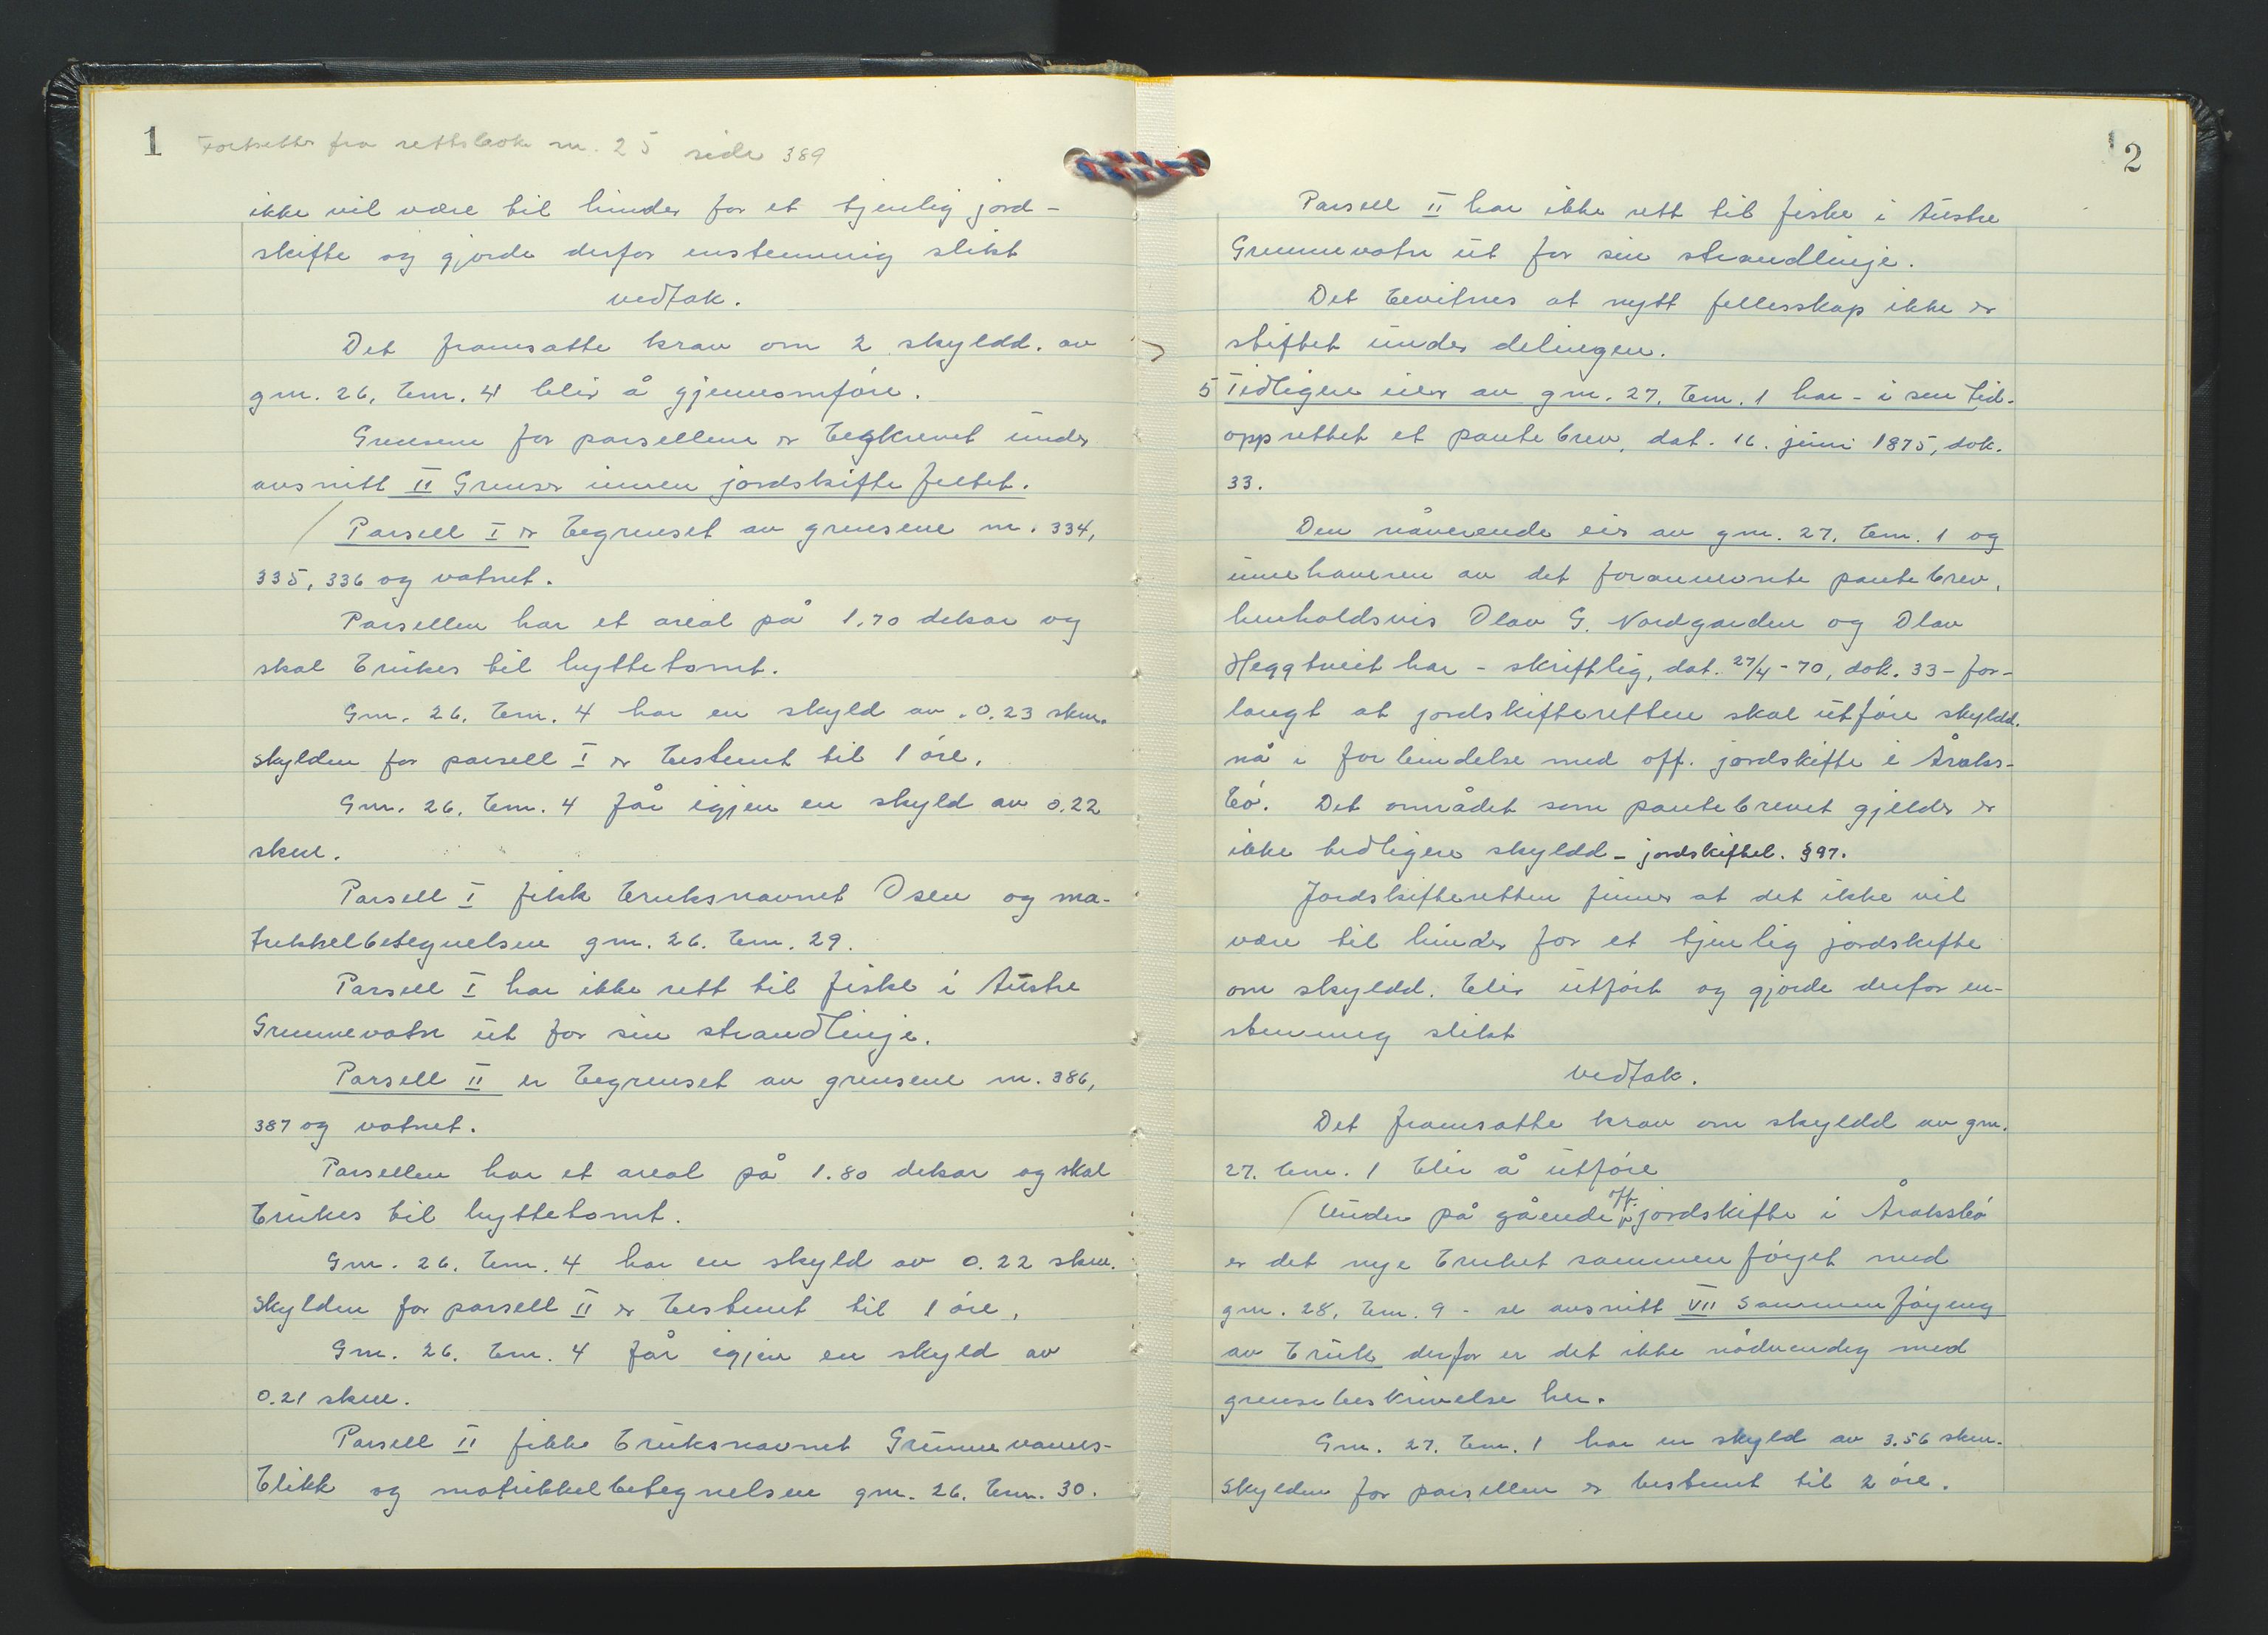 1 Fortsetter fra rettsbok nr. 25 side 389
ikke vil være til hinder for et tjenlig jord-
skifte og gjorde derfor enstemmig slikt
vedtak.
Det framsatte krav om 2 skyldd. av
gnr. 26, bnr. 4 blir å gjennomføre.
Grensene for parsellene er beskrevet under
avsnitt II Grenser innen jordskiftefeltet.
Parsell I er begrenset av grensene nr. 334,
335, 336 og vatnet.
Parsellen har et areal på 1.70 dekar og
skal brukes til hyttetomt.
Gnr. 26, bnr. 4 har en skyld av 0.23 skm.
Skylden for parsell I er bestemt til 1 øre.
Gnr. 26, bnr. 4 får igjen en skyld av 0.22
skm.
Parsell I fikk bruksnavnet Osen og ma-
trikkelbetegnelsen gnr. 26. bnr. 29.
Parsell I har ikke rett til fiske i Austre
Grunnevatn ut for sin strandlinje.
Parsell II er begrenset av grensene nr. 386,
387 og vatnet.
Parsellen har et areal på 1.80 dekar og skal
brukes til hyttetomt.
Gnr. 26, bnr. 4 har en skyld av 0.22 skm.
Skylden for parsell II er bestemt til 1 øre.
Gnr. 26. bnr. 4 får igjen en skyld av
0.21 skm.
Parsell II fikk bruksnavnet Grunnevanns-
blikk og matrikkelbetegnelsen gnr. 26. bnr. 30.
2
Parsell II har ikke rett til fiske i Austre
Grunnevatn ut for sin strandlinje.
Det bevitnes at nytt fellesskap ikke er
stiftet under delingen.
5 Tidligere eier av gnr. 27, bnr. 1 har - i sin tid -
opprettet et pantebrev, dat. 16. juni 1875, dok.
33.
Den nåværende eier av gnr. 27, bnr. 1 og
innehaveren av det forannevnte pantebrev,
henholdsvis Olav G. Nordgarden og Olav
Heggtveit har - skriftlig, dat. 27/4-70, dok. 33 - for-
langt at jordskifteretten skal utføre skyldd.
nå i forbindelse med off. jordskifte i Åraks-
bø. Det området som pantebrevet gjelder er
ikke tidligere skyldd - jordskiftel. § 97.
Jordskifteretten finner at det ikke vil
være til hinder for et tjenlig jordskifte
om skyldd. blir utført og gjorde derfor en-
stemmig slikt
vedtak.
Det framsatte krav om skyldd av gnr.
27. bnr. 1 blir å utføre
Under på gående off. jordskifte i Åraksbø
er det nye bruket sammenføyet med
gnr. 28, bnr. 9 - se avsnitt VII Sammenføying
av bruk derfor er det ikke nødvendig med
grensebeskrivelse her.
Gnr. 27. bnr. 1 har en skyld av 3.56 skm.
Skylden for parsellen er bestemt til 2 øre.